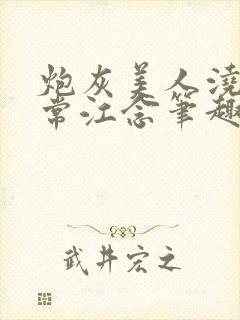 炮灰美人滺
常江念笔趣
武井宏之